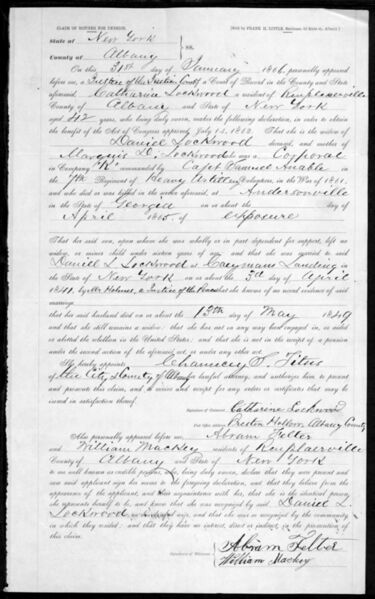 CLAIM OF MOTHER FOR PENSION.
State of New York
County of Albany } ss.
On this 31st day of January 1866, personally appeared
before me, a Justice of the Justices Court a Court of Record in the County and State
aforesaid, Catharine Lockwood a resident of Renssalaerville
County of Albany and State of New York
aged 42 years, who being duly sworn, makes the following declaration, in order to obtain
the benefit of the Act of Congress approved July 14, 1862. That she is the widow of
Daniel Lockwood deceased, and mother of
Marquis D. Lockwood who was a Corporal
in Company "K" commanded by Capt. Samuel Anable in the
7th Regiment of Heavy Artillery Volunteers, in the War of 1861,
and who died or was killed in the service aforesaid, at Andersonville
in the State of Georgia on or about the day of
April 1865, of exposure
That her said son, upon whom she was wholly or in part dependent for support, left no
widow, or minor child under sixteen years of age, and that she was married to said
Daniel L Lockwood at Coeymans Landing in
the State of New York on or about the 5th day of April
1841, by Mr Holmes, a Justice of the Peace she knows of no record evidence of said
marriage,
that her said husband died on or about the 13th day of May 1849
and that she still remains a widow: that she has not in any way been engaged in, or aided
or abetted the rebellion in the United States; and that she is not in the receipt of a pension
under the second section of the aforesaid, or under any other act.
She hereby appoints Chauncey P. Titus
of the City & County of Albany her lawful attorney, and authorizes him to present
and prosecute this claim, and to receive and receipt for any orders or certificates that may be
issued in satisfaction thereof.
Signature of Claimant, Catharine Lockwood
Post Office address, Preston Hollow Albany County
Also personally appeared before me, Abram Felter
and William Mackey residents of Renssalaerville
County of Albany and State of New York
to me well known as credible persons, who, being duly sworn, declare that they were present and
saw said applicant sign her name to the foregoing declaration, and that they believe from the
appearance of the applicant, and their acquaintance with her, that she is the identical person
she represents herself to be, and know that she was recognized by said Daniel L.
Lockwood as his lawful wife, and that she was so recognized by the community
in which they resided: and that they have no interest, direct or indirect in the prosecution of
this claim.
Signatures of Witnesses, Abram Felter
William Mackey